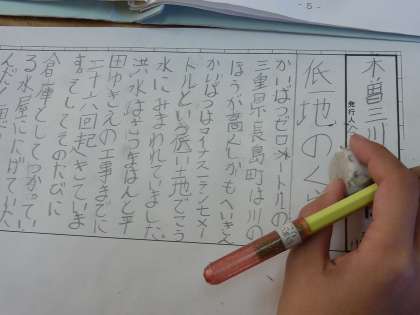 -5-
木曽三川
発行人
低地のく
かいばつゼロメートルの
三重県長島町は川の
ほうが高くしかもへいきん
かいばつはマイナス一センチメー
トルという低い土地でこう
水にみまわれていました。
洪水は
田ゆきえの工事までに
二十八回起
そしてそのたびに
倉庫としてつかってい
る水屋ににげていた